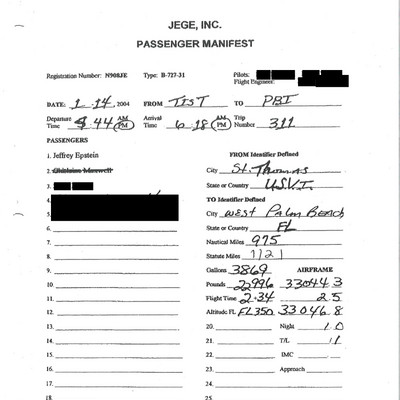 JEGE, INC.
PASSENGER MANIFEST
Registration Number: N908JE Type: B-727-31 Pilots:
Flight Engineer
DATE: 1-14, 2004 FROM TIST TO PBI
Departure Time 4:44 AM PM Arrival Time 6:18 AM PM Trip Number 311
PASSENGERS
1. Jeffrey Epstein FROM Identifier Defined
2. Ghislaine Maxwell City St. Thomas
3. State or Country U.S.V.I.
4. TO Identifier Defined
5. City WEST PALM BEACH
6. State or Country FL
7. Nautical Miles 975
8. Statute Miles 1121
9. Gallons 3869 AIRFRAME
10. Pounds 22996 33044 3
11. Flight Time 2+34 2 5
12. Altitude FL FL350 33046 8
13. 20. Night 1 0
14. 21. T/L 1/1
15. 22. IMC
16. 23. Approach
17. 24.
18. 25.